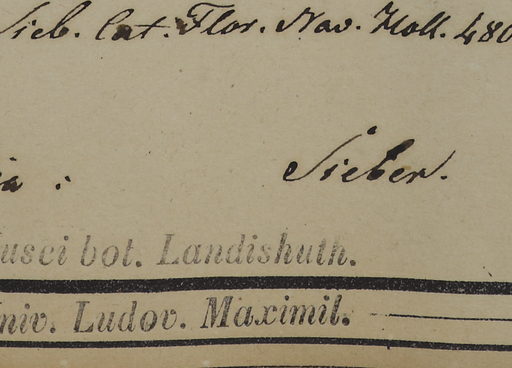 Sieb. Cat. Flor. Nov. Holl. 480
Sieber.
usci bot. Landishuth.
niv. Ludov. Maximil.